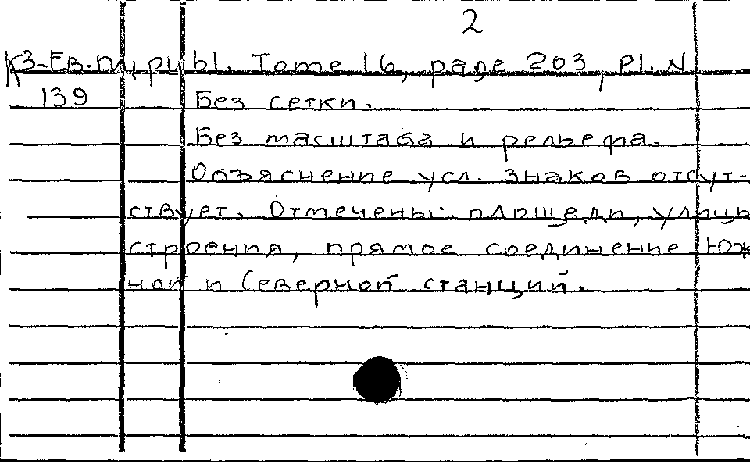 2
КЗ-Ев. Tome 16, page 203, Pl. N
139 Без сетки.
Без масштаба и рельефа.
Объяснение усл. знаков отсут-
ствует. Отмечены площади, улицы
строения, прямое соединение Юж
ной и Северной станций.